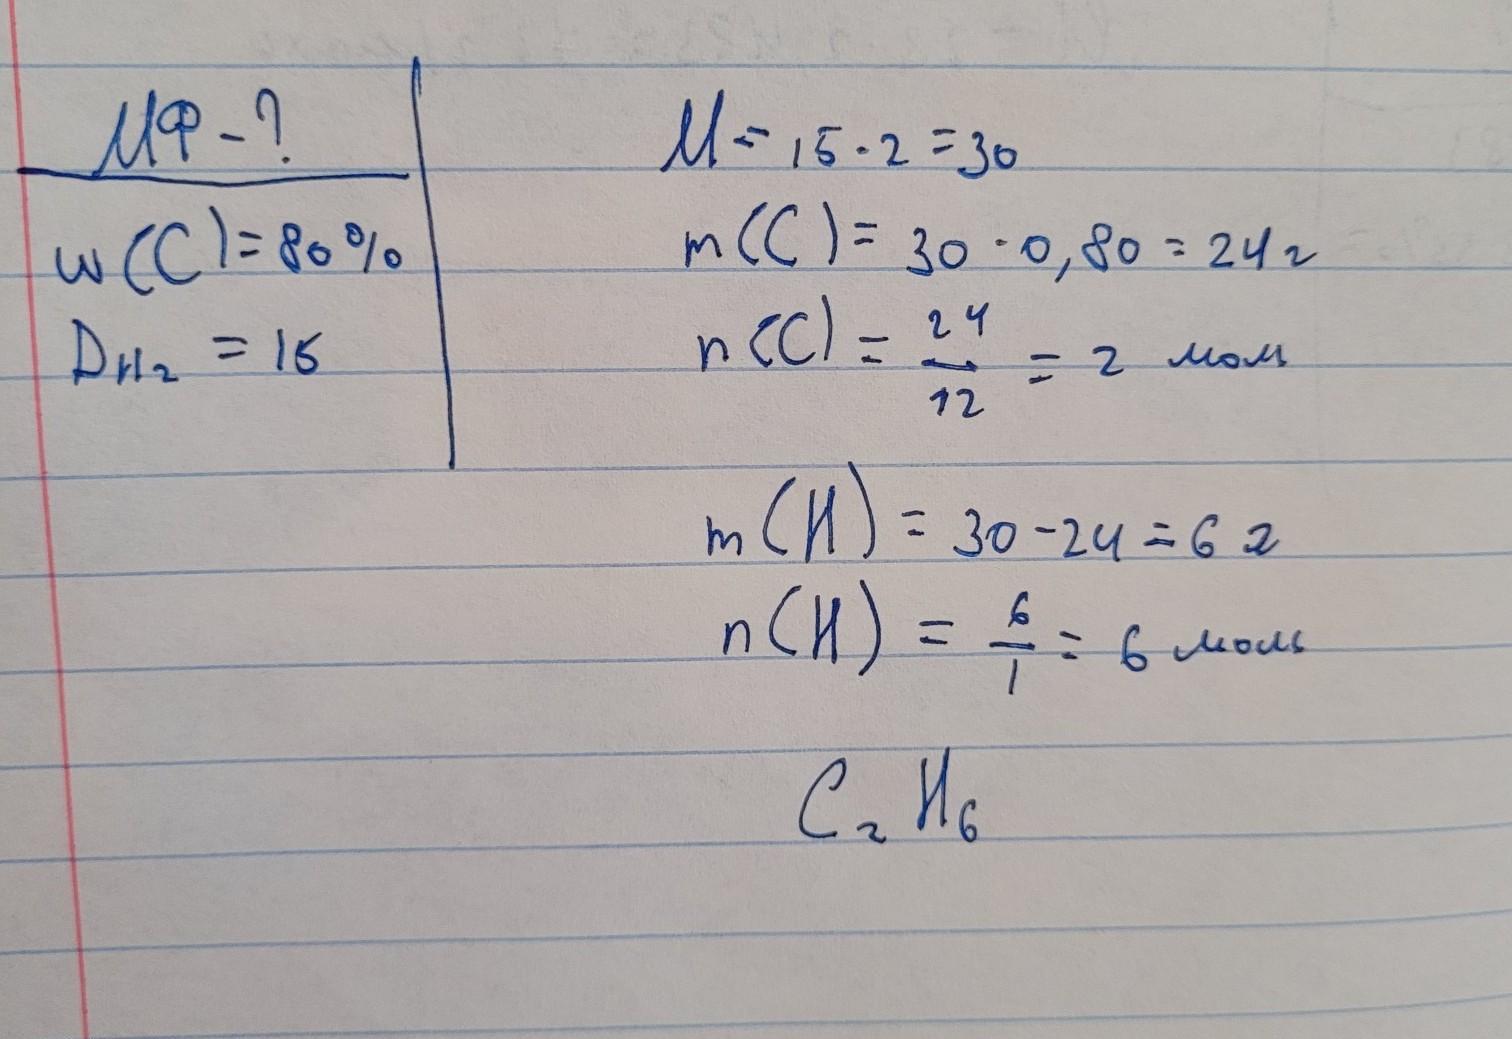 МФ-?
w(C)=80%
D_H₂ = 15
М = 15·2=30
m(C)= 30·0,80=24г
n(C) = 24/12 = 2 моль
m(H) = 30-24=6 г
n(H) = 6/1 = 6 моль
C₂H₆